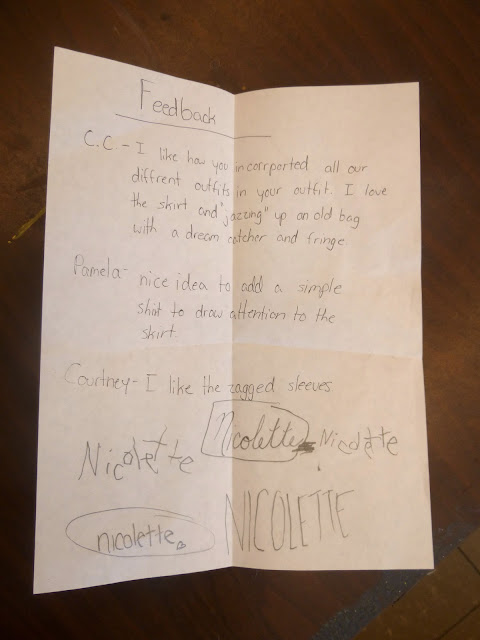 Feedback
C.C. - I like how you incorrported all our
diffrent outfits in your outfit. I love
the skirt and "jazzing" up an old bag
with a dream catcher and fringe.
Pamela - nice idea to add a simple
shirt to draw attention to the
skirt.
Courtney - I like the ragged sleeves
Nicolette Nicolette Nicolette
nicolette. NICOLETTE